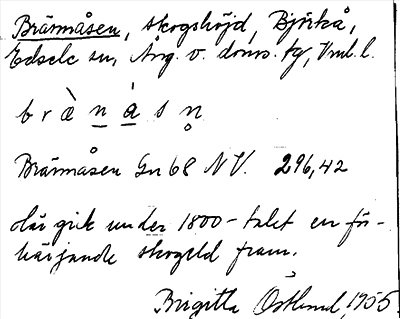 Brännåsen, skogshöjd, Björkå,
Edsele sn, Ång. v. doms. tg, Vnl. l.
b r æ̀ n å̀ s n̥
Brännåsen Gn 68 NV. 296,42
där gick under 1800-talet en för-
härjande skogseld fram.
Birgitta Östlund, 1955.